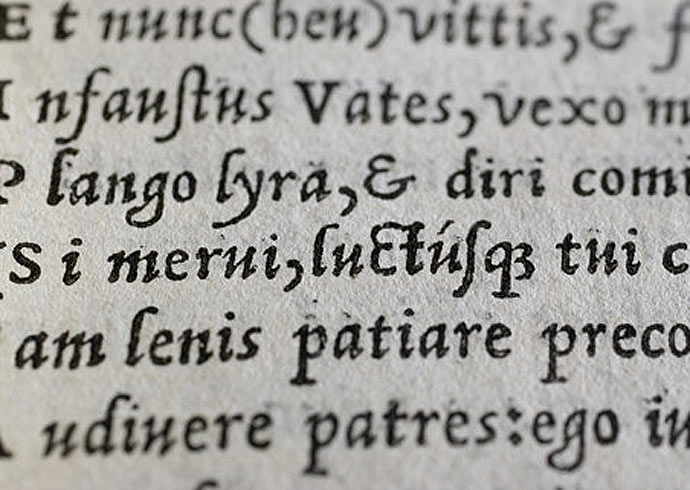 Et nunc (heu) vittis, &
Infaustus Vates, vexo
Plango lyra, & diri
Si merui, luctúsqꝫ tui
am lenis patiare
Audiuere patres: ego